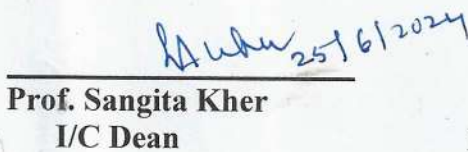 25/6/2024
Prof. Sangita Kher
I/C Dean